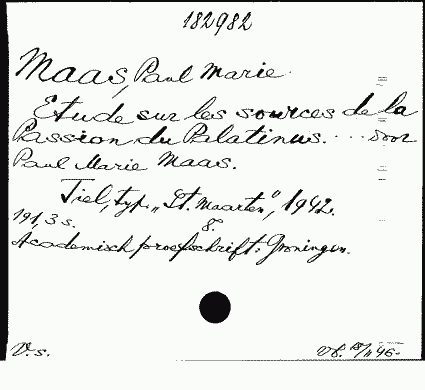 182982
Maas, Paul Marie.
Etude sur les sources de la
Passion du Palatinus. ... door
Paul Marie Maas.
Tiel, typ. „St. Maarten", 1942.
191, 3 s. 8.
Academisch proefschrift: Groningen.
V.s. Vb. 18/11 46-